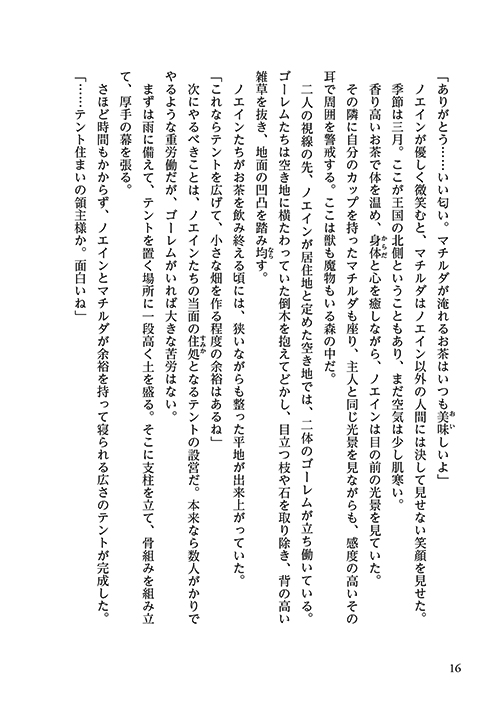 「ありがとう……いい匂い。マチルダが淹れるお茶はいつも美味しいよ」
ノエインが優しく微笑むと、マチルダはノエイン以外の人間には決して見せない笑顔を見せた。
季節は三月。ここが王国の北側ということもあり、まだ空気は少し肌寒い。
香り高いお茶で体を温め、身体と心を癒しながら、ノエインは目の前の光景を見ていた。
その隣に自分のカップを持ったマチルダも座り、主人と同じ光景を見ながらも、感度の高いその
耳で周囲を警戒する。ここは獣も魔物もいる森の中だ。
二人の視線の先、ノエインが居住地と定めた空き地では、二体のゴーレムが立ち働いている。
ゴーレムたちは空き地に横たわっていた倒木を抱えてどかし、目立つ枝や石を取り除き、背の高い
雑草を抜き、地面の凹凸を踏み均す。
ノエインたちがお茶を飲み終える頃には、狭いながらも整った平地が出来上がっていた。
「これならテントを広げて、小さな畑を作る程度の余裕はあるね」
次にやるべきことは、ノエインたちの当面の住処となるテントの設営だ。本来なら数人がかりで
やるような重労働だが、ゴーレムがいれば大きな苦労はない。
まずは雨に備えて、テントを置く場所に一段高く土を盛る。そこに支柱を立て、骨組みを組み立
て、厚手の幕を張る。
さほど時間もかからず、ノエインとマチルダが余裕を持って寝られる広さのテントが完成した。
「……テント住まいの領主様か。面白いね」
16